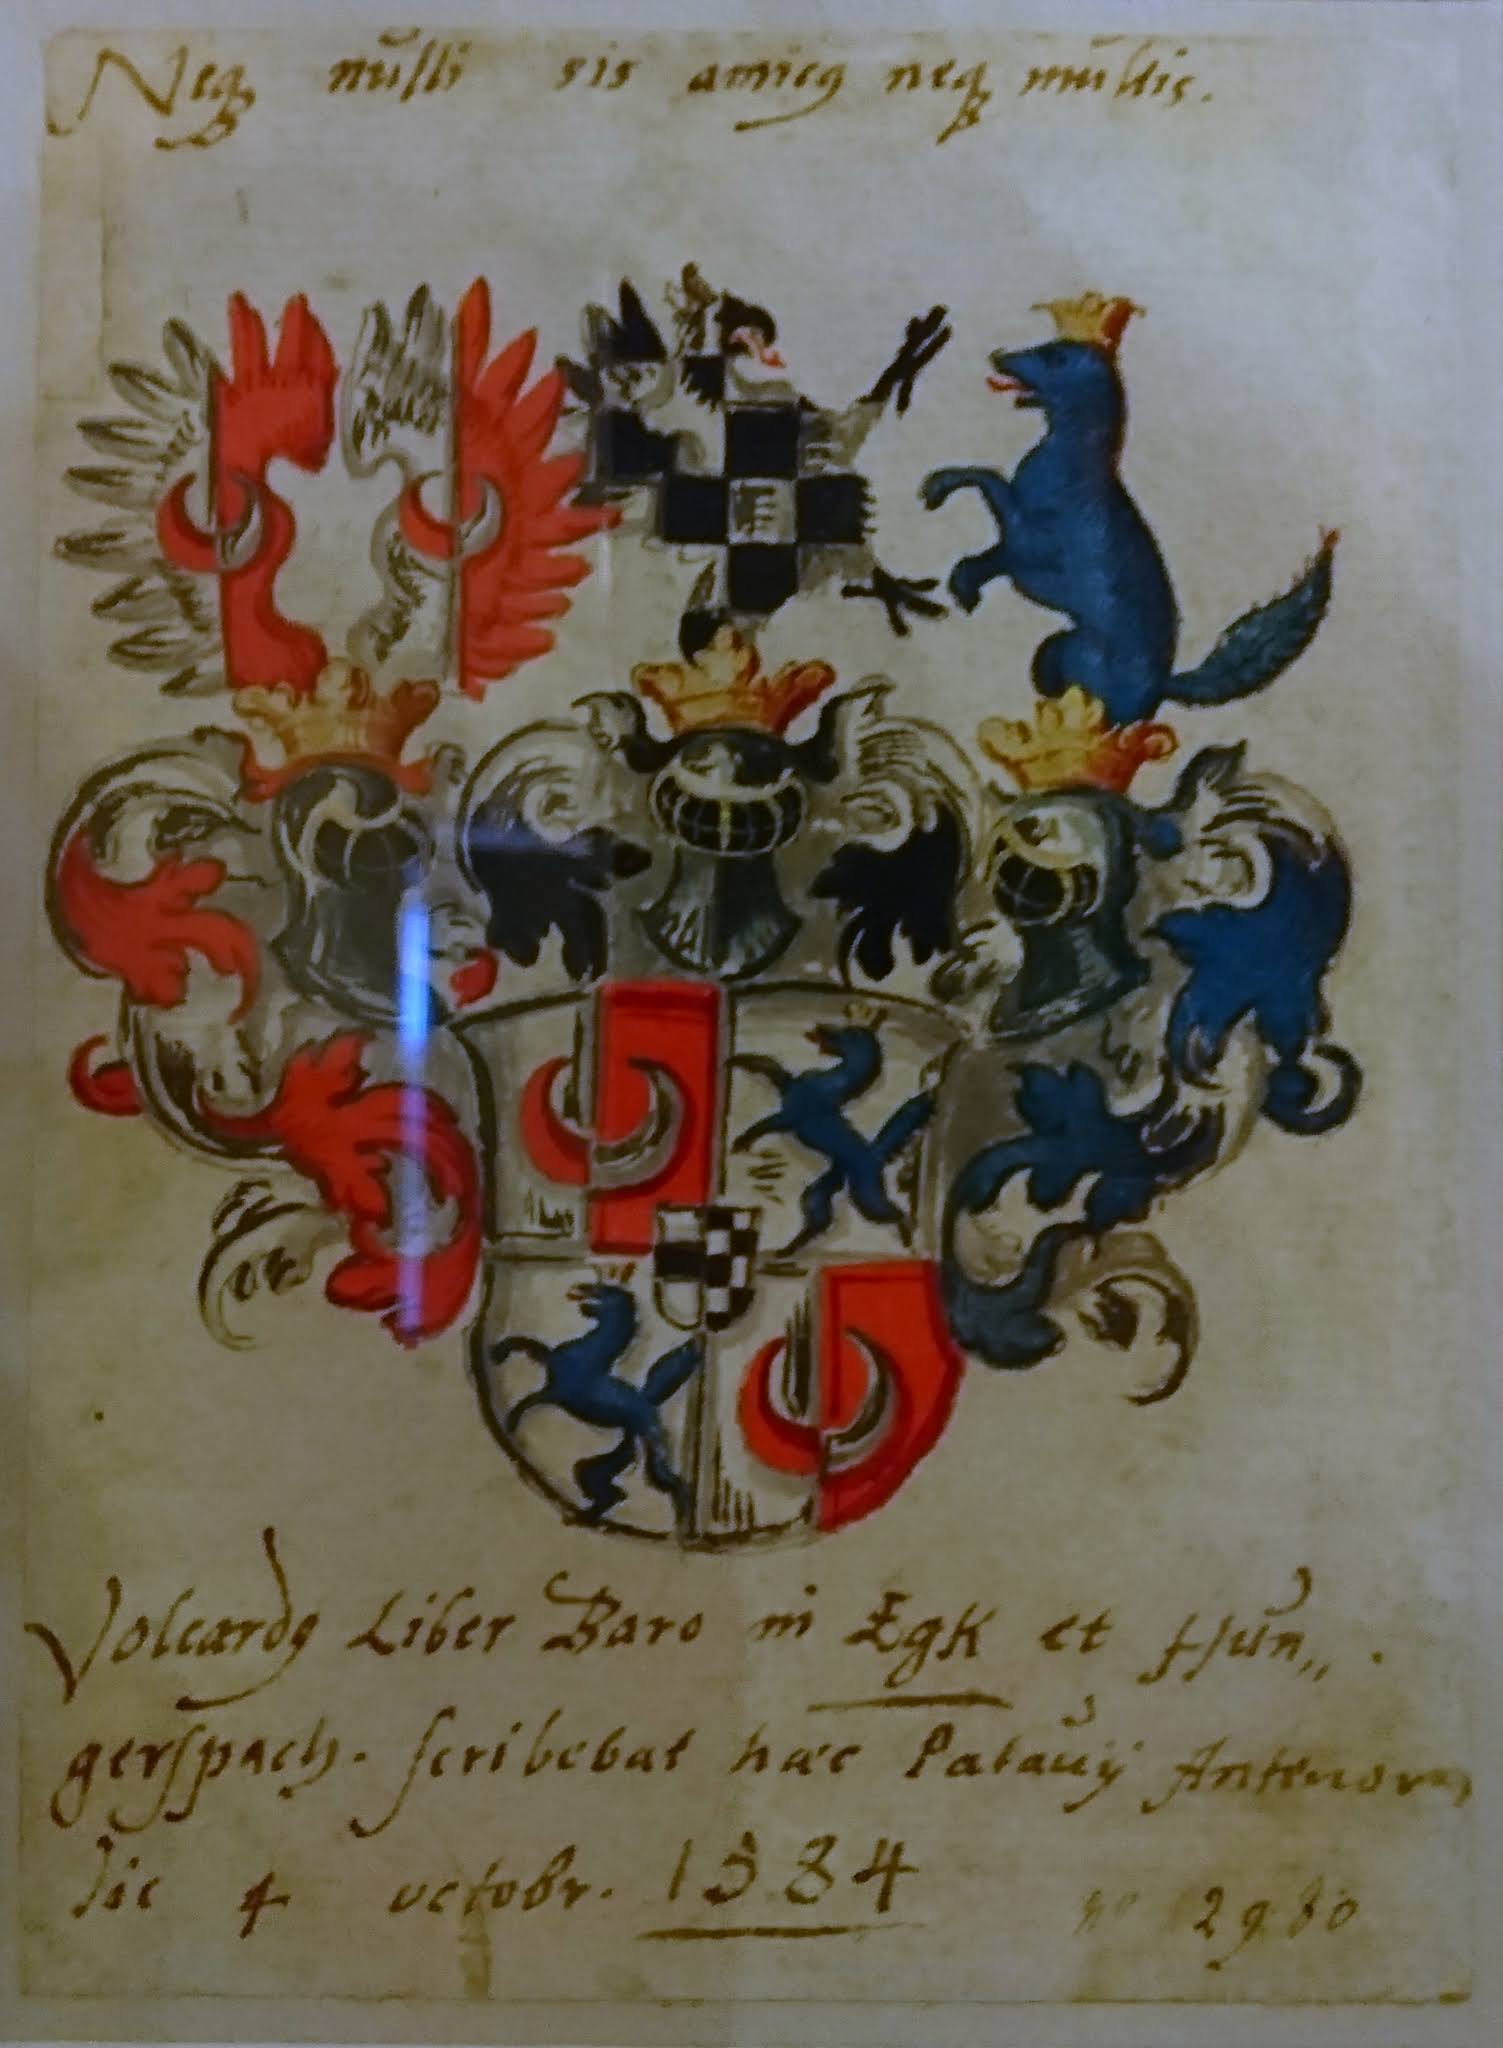 Neq nulli sis amicꝯ neq multis.
Volcardꝯ Liber Baro in Egk et Hun„
gerspach. scribebat haec Patavij Antenoris
die 4 octobr. 1584
2980